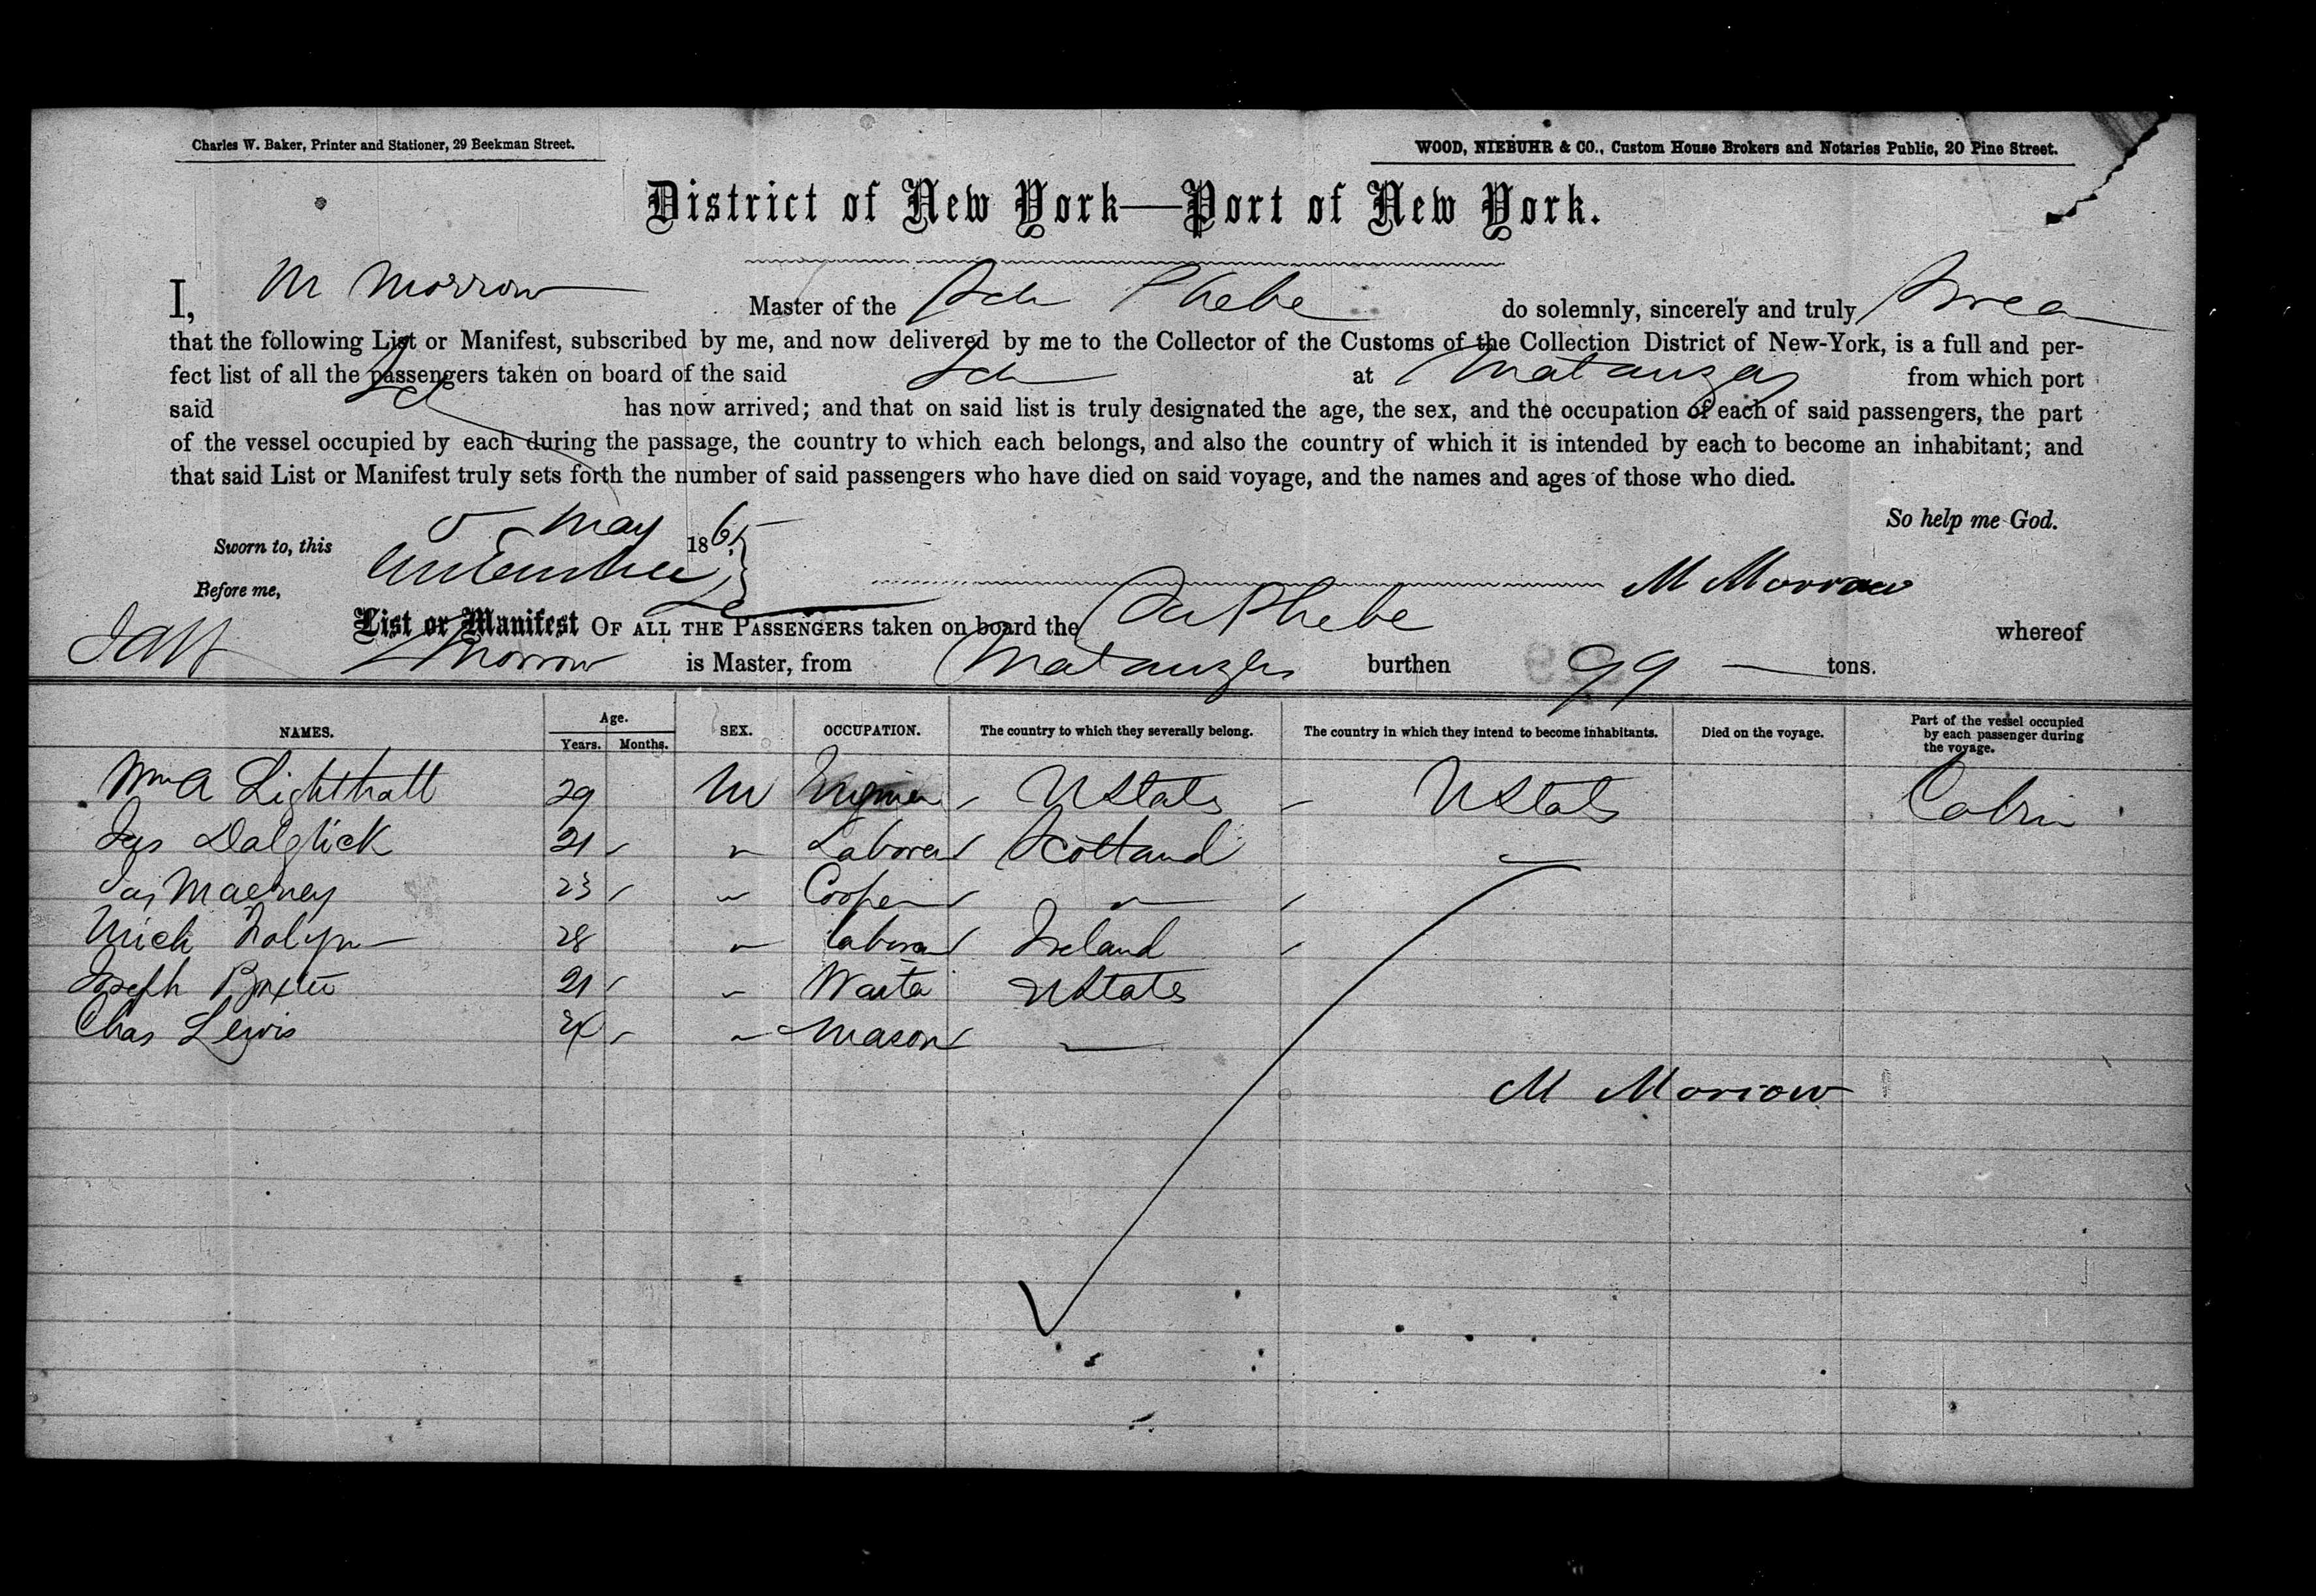 Charles W. Baker, Printer and Stationer, 29 Beekman Street.
WOOD, NIEBUHR & CO., Custom House Brokers and Notaries Public, 20 Pine Street.
District of New York—Port of New York.
I, M Morrow Master of the Sch Phebe do solemnly, sincerely and truly Swear
that the following List or Manifest, subscribed by me, and now delivered by me to the Collector of the Customs of the Collection District of New-York, is a full and per-
fect list of all the passengers taken on board of the said Sch at Matanzas from which port
said Sch has now arrived; and that on said list is truly designated the age, the sex, and the occupation of each of said passengers, the part
of the vessel occupied by each during the passage, the country to which each belongs, and also the country of which it is intended by each to become an inhabitant; and
that said List or Manifest truly sets forth the number of said passengers who have died on said voyage, and the names and ages of those who died.
So help me God.
Sworn to, this 5 May 1865
Before me,
M Morrow
List or Manifest OF ALL THE PASSENGERS taken on board the Sch Phebe whereof
Morrow is Master, from Matanzas burthen 99 tons.
NAMES. Age. Years. Months. SEX. OCCUPATION. The country to which they severally belong. The country in which they intend to become inhabitants. Died on the voyage. Part of the vessel occupied by each passenger during the voyage.
Wm A Lighthall 29 M Engineer U States U States Cabin
Jas Dalglick 21 " Laborer Scotland "
Jas 23 " Cooper "
Mich 28 " Laborer Ireland
Joseph Baxter 21 " Waiter U States
Chas Lewis " Mason "
M Morrow